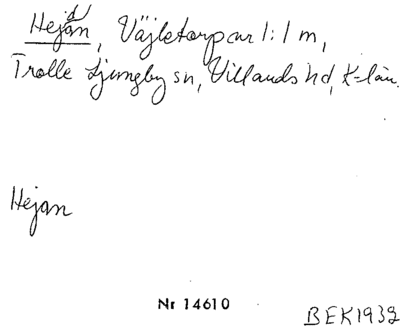 Hejan, Väjletorp cur 1:1 m,
Trolle Ljungby sn, Villands hd, K-län.
Hejan
Nr 14610
BEK1932